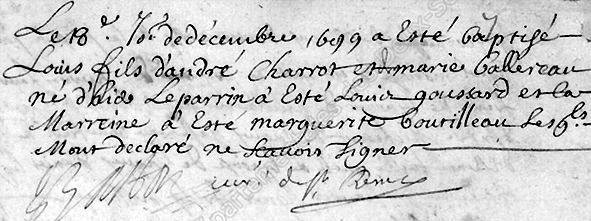 Le 18e. Jor. de décembre 1699 a Esté baptisé
Louis fils d'andré Charrot et marie ballereau
né d'hier Leparrin à Esté Louis goussard et la
Marreine à Esté marguerite boutilleau Lesqls
Mont declaré ne sçavoir signer
curé de St